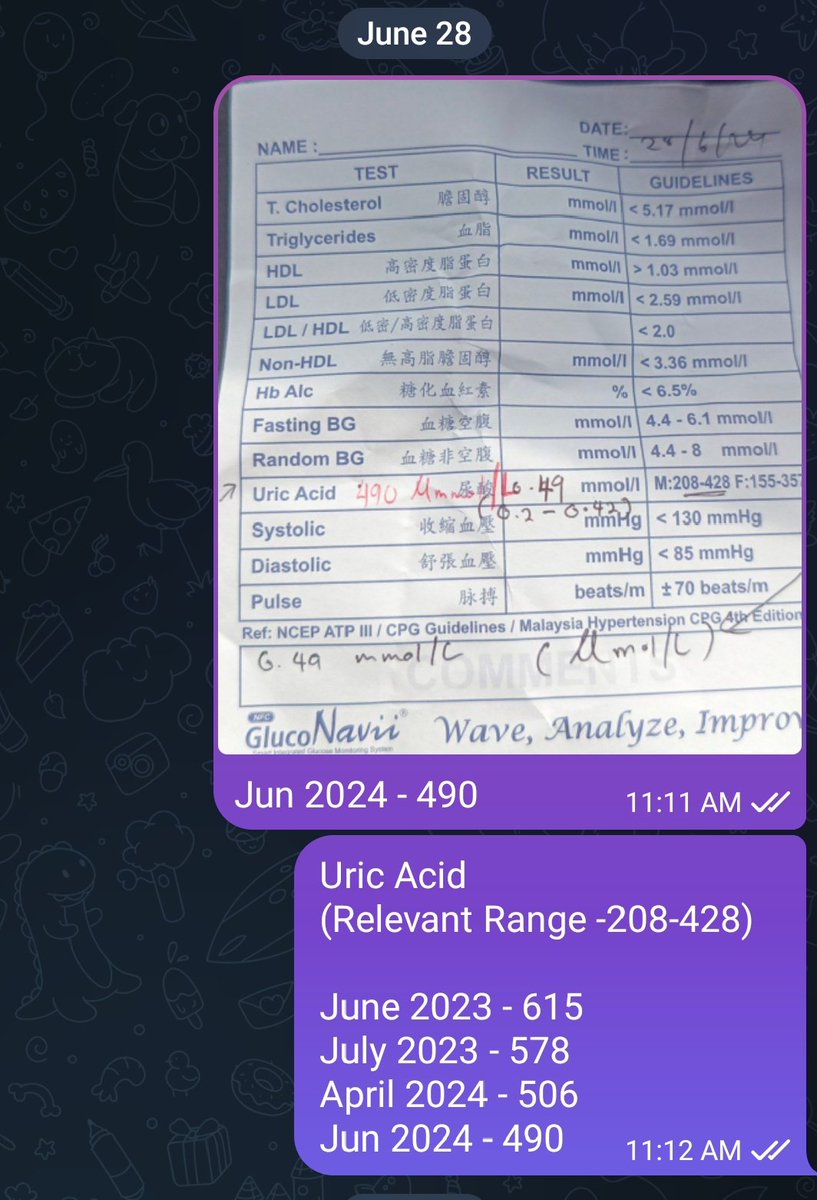 June 28
DATE: 28/6/24
NAME :
TIME :
TEST RESULT GUIDELINES
T. Cholesterol 膽固醇 mmol/l < 5.17 mmol/l
Triglycerides 血脂 mmol/l < 1.69 mmol/l
HDL 高密度脂蛋白 mmol/l > 1.03 mmol/l
LDL 低密度脂蛋白 mmol/l < 2.59 mmol/l
LDL / HDL 低密/高密度脂蛋白 < 2.0
Non-HDL 無高脂膽固醇 mmol/l < 3.36 mmol/l
Hb Alc 糖化血紅素 % < 6.5%
Fasting BG 血糖空腹 mmol/l 4.4 - 6.1 mmol/l
Random BG 血糖非空腹 mmol/l 4.4 - 8 mmol/l
Uric Acid 490 尿酸 0.49 mmol/l M:208-428 F:155-357
(0.2 - 0.42)
Systolic 收縮血壓 mmHg < 130 mmHg
Diastolic 舒張血壓 mmHg < 85 mmHg
Pulse 脉搏 beats/m ±70 beats/m
Ref: NCEP ATP III / CPG Guidelines / Malaysia Hypertension CPG 4th Edition
0.49 mmol/L (Umol/L)
COMMENTS
NFC
GlucoNavii® Wave, Analyze, Improv
Smart Integrated Glucose Monitoring System
Jun 2024 - 490 11:11 AM
Uric Acid
(Relevant Range -208-428)
June 2023 - 615
July 2023 - 578
April 2024 - 506
Jun 2024 - 490 11:12 AM